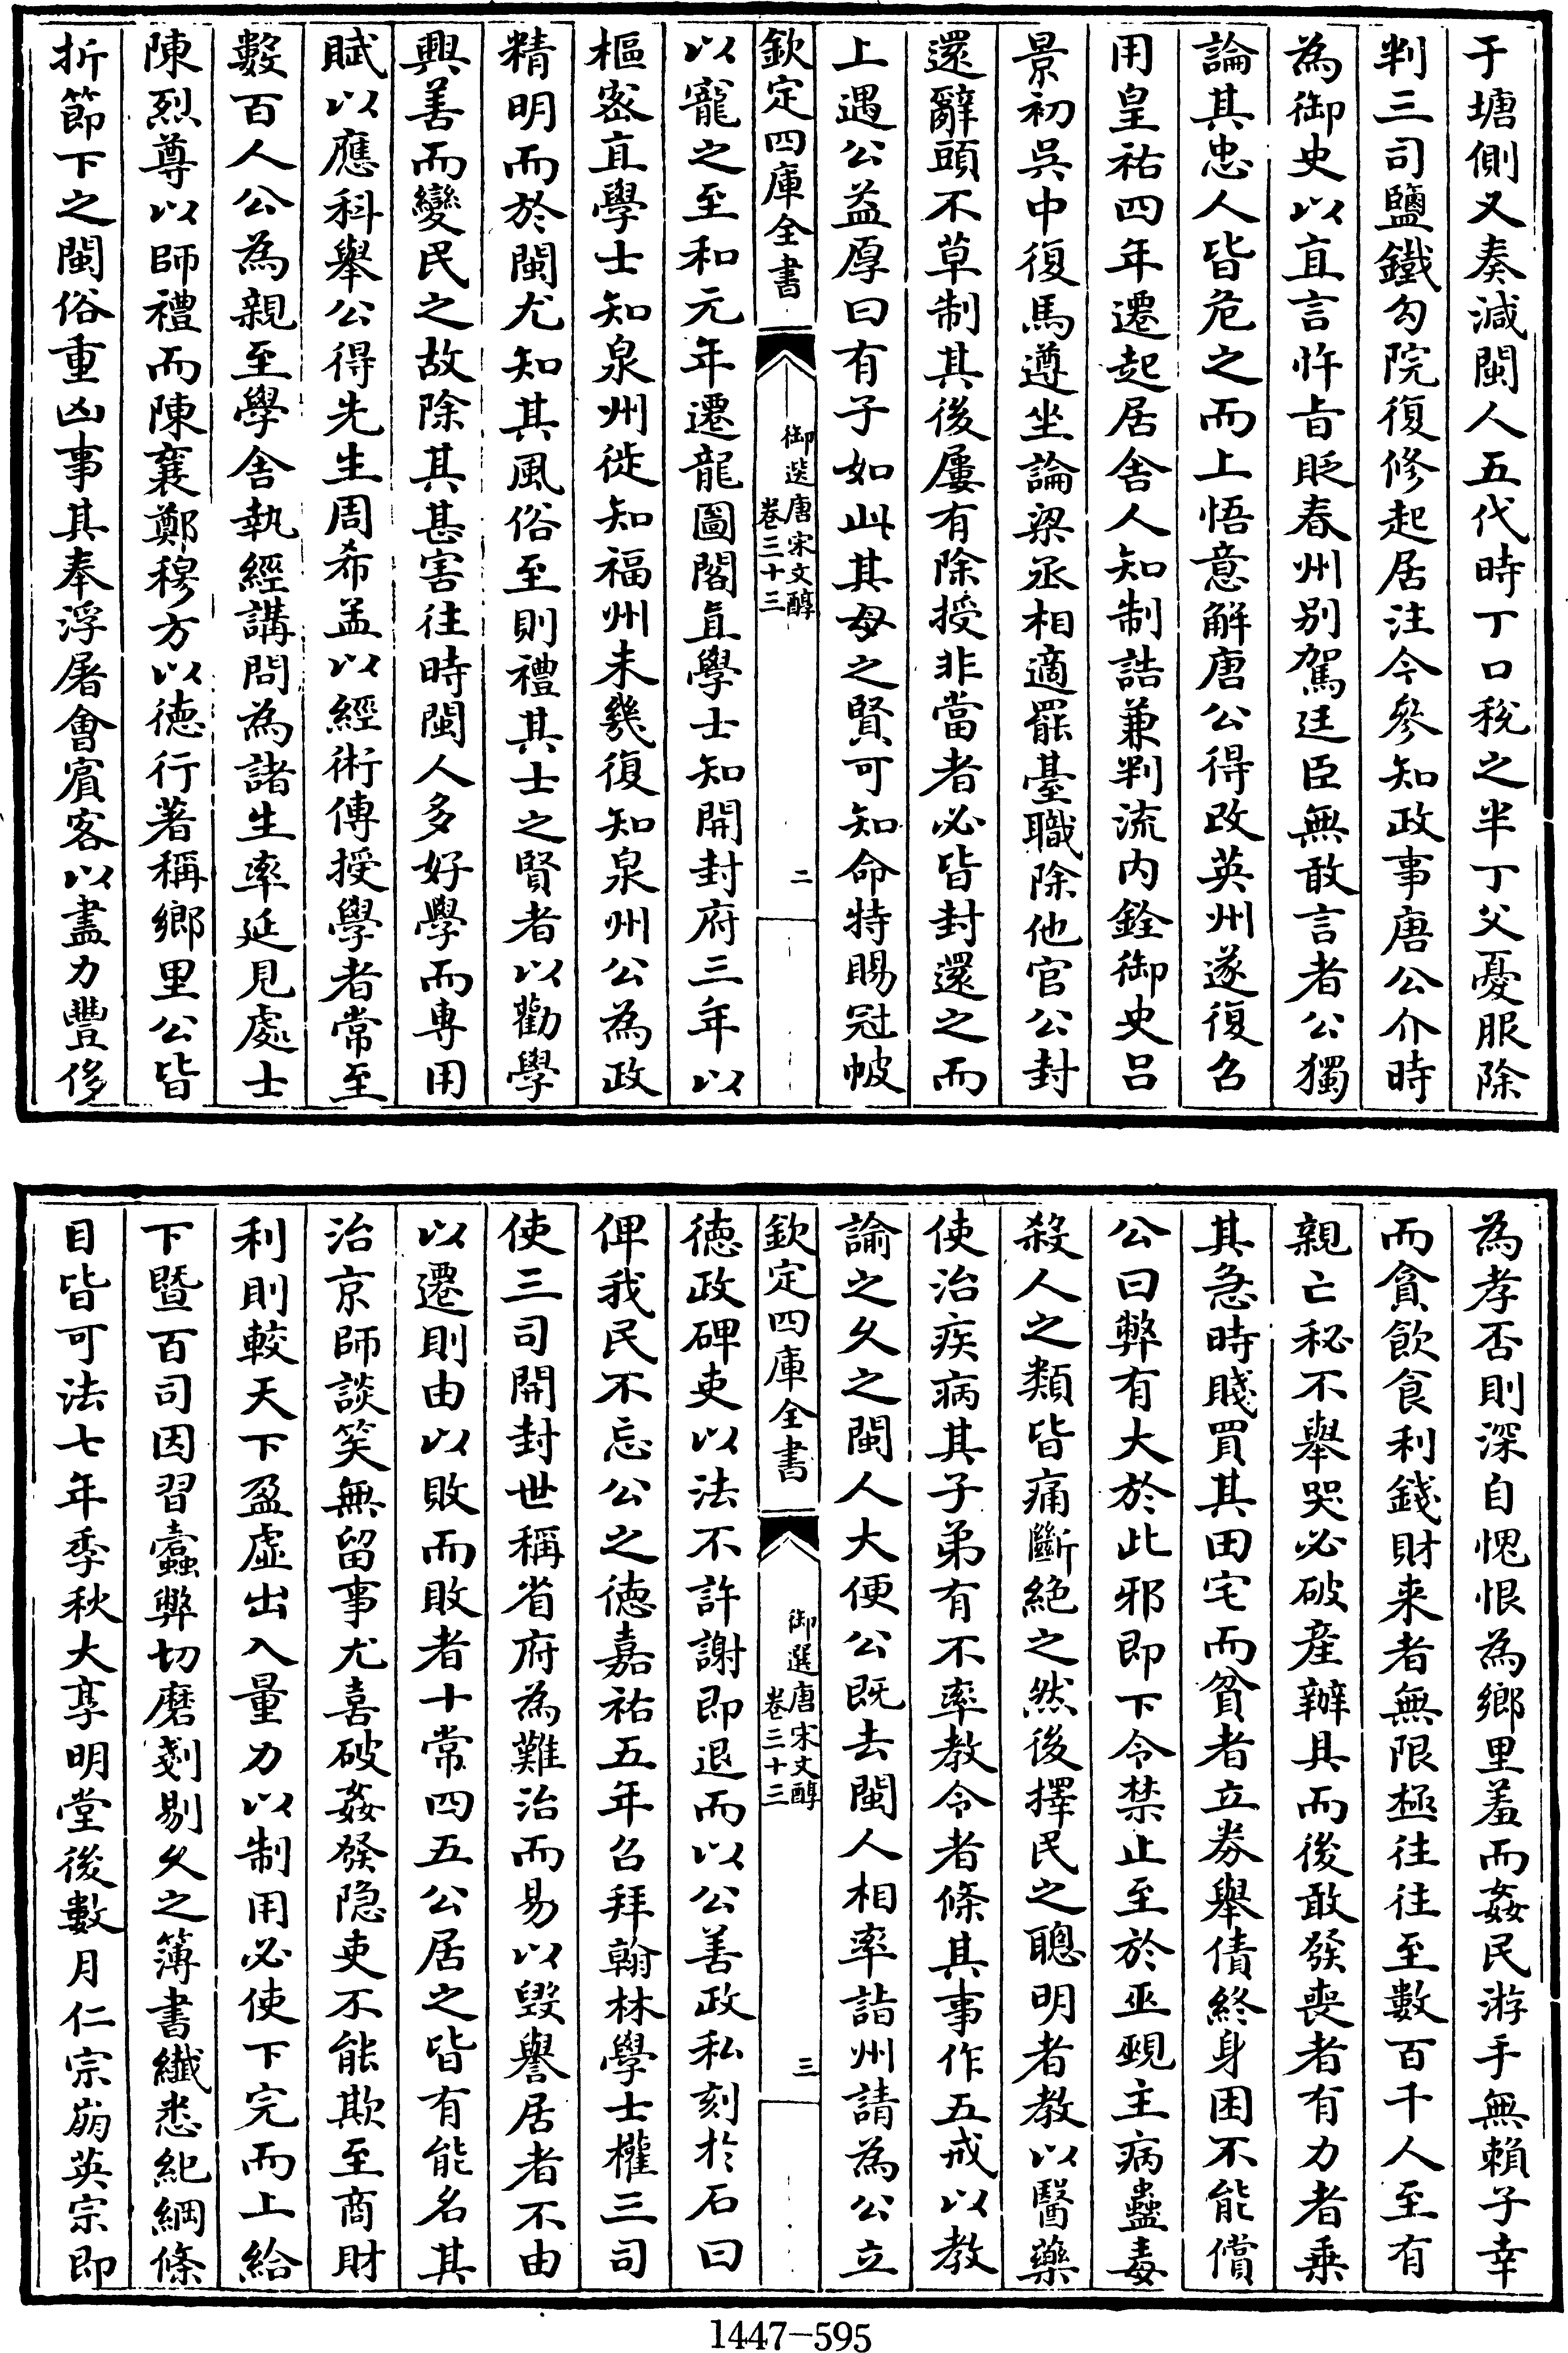 于塘側又奏減閩人五代時丁口稅之半丁父憂服除
判三司鹽鐵勾院復修起居注今參知政事唐公介時
為御史以直言忤㫖貶春州别駕廷臣無敢言者公獨
論其忠人皆危之而上悟意解唐公得改英州遂復召
用皇祐四年遷起居舍人知制誥兼判流内銓御史吕
景初吳中復馬遵坐論梁丞相適罷臺職除他官公封
還辭頭不草制其後屢有除授非當者必皆封還之而
上遇公益厚曰有子如此其母之賢可知命特賜冠帔
欽定四庫全書
御選唐宋文醇
卷三十三
二
以寵之至和元年遷龍圖閣直學士知開封府三年以
樞密直學士知泉州徙知福州未幾復知泉州公為政
精明而於閩尤知其風俗至則禮其士之賢者以勸學
興善而變民之故除其甚害往時閩人多好學而専用
賦以應科舉公得先生周希孟以經術傳授學者常至
數百人公為親至學舍執經講問為諸生率延見處士
陳烈尊以師禮而陳襄鄭穆方以徳行著稱鄉里公皆
折節下之閩俗重凶事其奉浮屠會賓客以盡力豐侈
為孝否則深自愧恨為鄉里羞而姦民游手無賴子幸
而貪飲食利錢財来者無限極往往至數百千人至有
親亡秘不舉哭必破產辦具而後敢發喪者有力者乗
其急時賤買其田宅而貧者立劵舉債終身困不能償
公曰弊有大於此邪即下令禁止至於巫覡主病蠱毒
殺人之類皆痛斷絶之然後擇民之聰明者教以醫藥
使治疾病其子弟有不率教令者條其事作五戒以教
諭之久之閩人大便公既去閩人相率詣州請為公立
欽定四庫全書
御選唐宋文醇
卷三十三
三
徳政碑吏以法不許謝即退而以公善政私刻於石曰
俾我民不忘公之徳嘉祐五年召拜翰林學士權三司
使三司開封世稱省府為難治而易以毁譽居者不由
以遷則由以敗而敗者十常四五公居之皆有能名其
治京師談笑無留事尤喜破姦發隐吏不能欺至商財
利則較天下盈虛出入量力以制用必使下完而上給
下暨百司因習蠹弊切磨剗剔久之簿書纎悉紀綱條
目皆可法七年季秋大享明堂後數月仁宗崩英宗即
1447-595